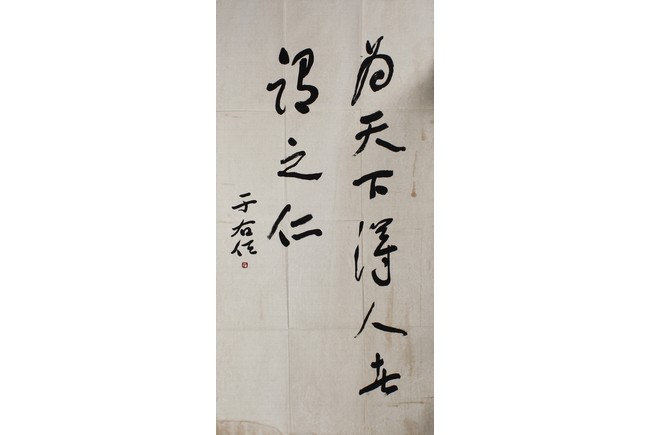 为天下得人者
谓之仁
于右任